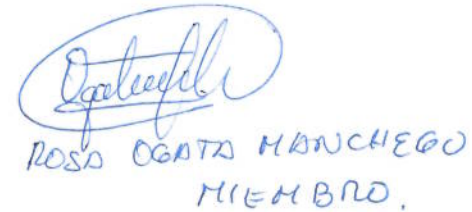 ROSA OGATA MANCHEGO
MIEMBRO.